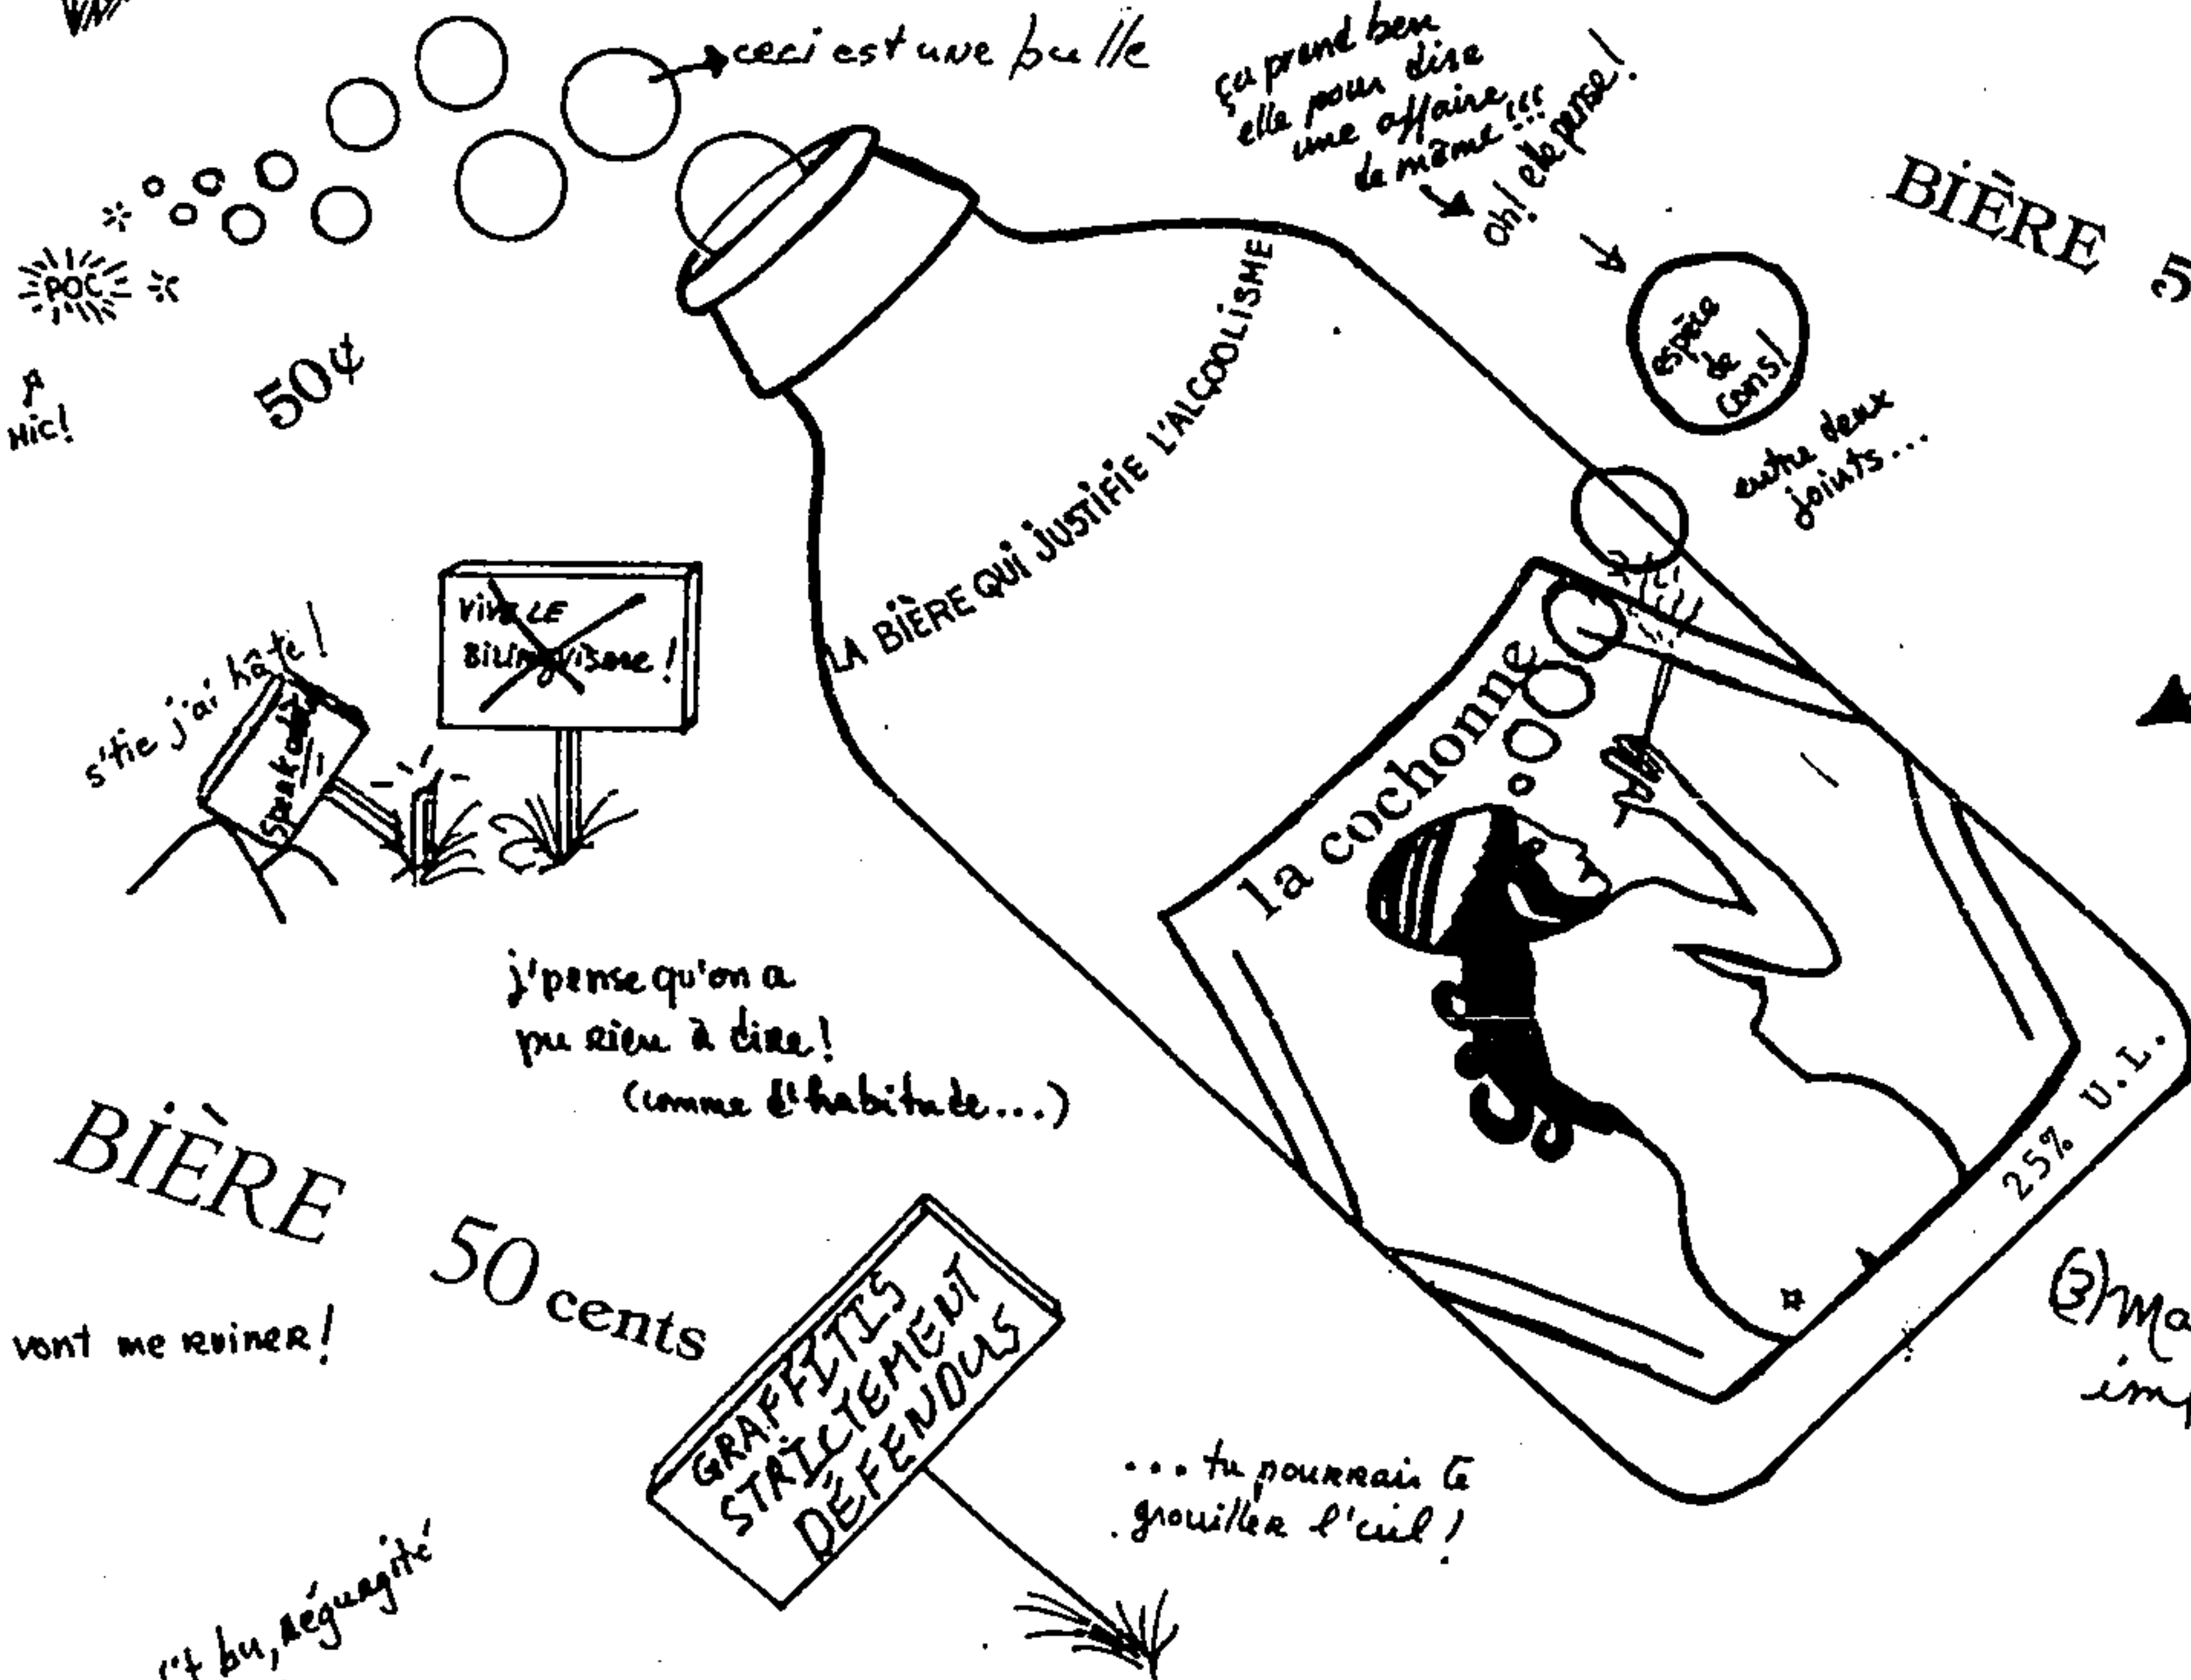 ceci est une bulle
ça prend ben
elle pour dire
une affaire
de même...!!!
oh! elle pense!
BIÈRE 5
POC
Hic!
50¢
espèce
de
cons!
entre deux
joints...
LA BIÈRE QUI JUSTIFIE L'ALCOOLISME
VIVE LE
BILINGUISME!
s'tie j'ai hâte!
la cochonne
25% U.L.
j'pense qu'on a
pu rien à dire!
(comme d'habitude...)
BIÈRE 50 cents
vont me ruiner!
GRAFFITIS
STRICTEMENT
DÉFENDUS
... tu pourrais te
grouiller l'cul!
't bu, régurgité